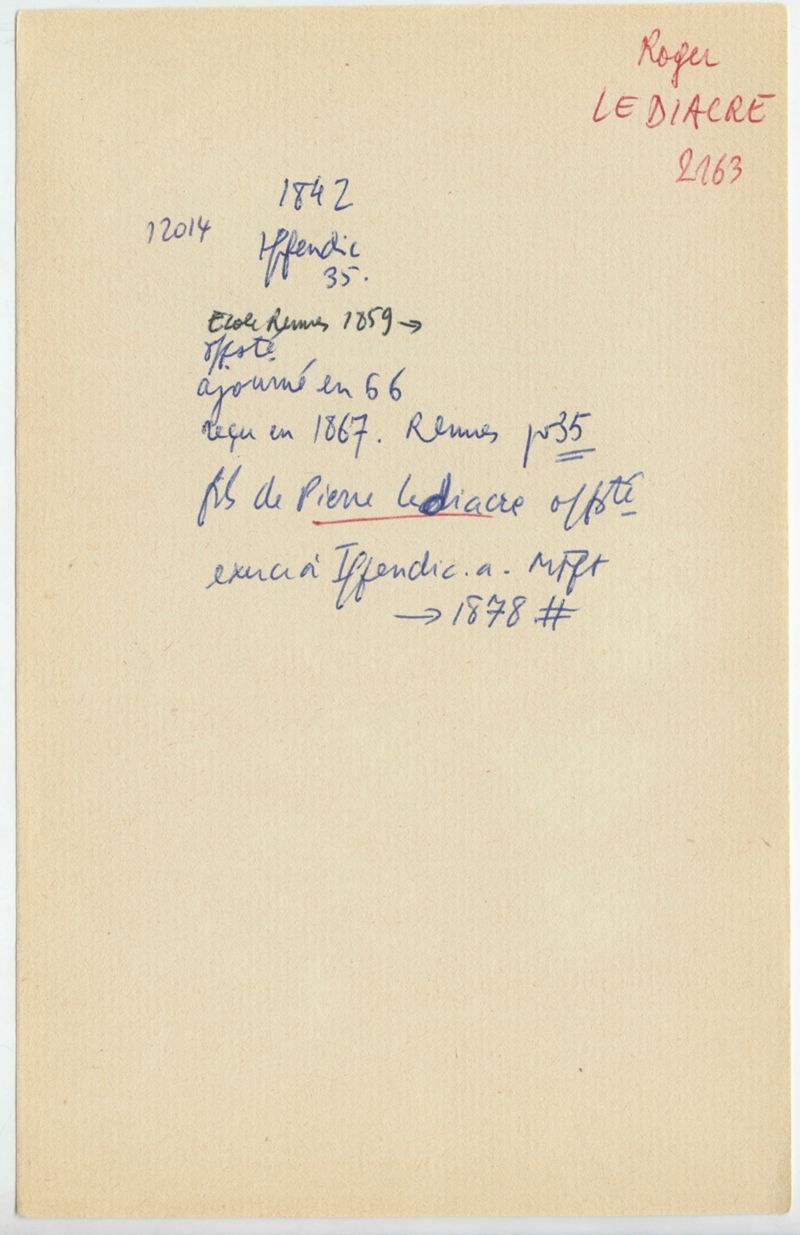 Roger
LEDIACRE
2163
1842
12014
Iffendic
35.
Ecole Rennes 1859 →
off. sté
ajourné en 66
reçu en 1867. Rennes pr 35
fils de Pierre Lediacre off sté
exerce à Iffendic. a. Mtft
→ 1878 #